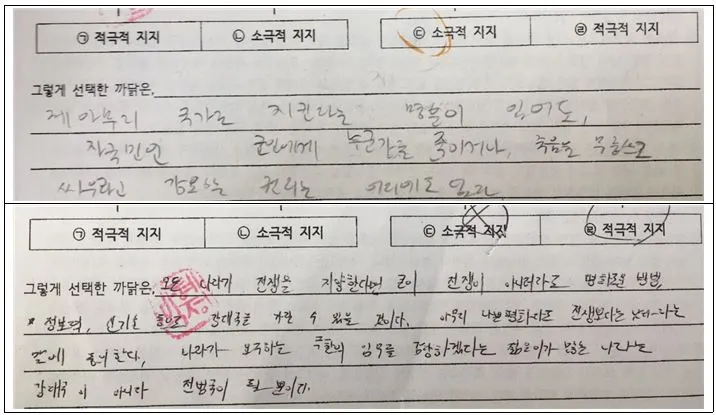 ㉠ 적극적 지지 ㉡ 소극적 지지 ㉢ 소극적 지지 ㉣ 적극적 지지
그렇게 선택한 까닭은,
제 아무리 국가를 지킨다는 명분이 있어도,
자국민인 군인에게 누군가를 죽이거나, 죽음을 무릅쓰고
싸우라고 강요하는 권리는 어디에도 없다
㉠ 적극적 지지 ㉡ 소극적 지지 ㉢ 소극적 지지 ㉣ 적극적 지지
그렇게 선택한 까닭은, 모든 나라가 전쟁을 지향한다면 굳이 전쟁이 아니더라도 평화로운 방법,
정보력, 신기술 등으로 강대국을 가릴 수 있을 것이다. 아무리 나쁜 평화라도 전쟁보다는 낫다라는
말에 동의한다. 나라가 요구하는 임무를 감당하겠다는 젊은이가 많은 나라는
강대국이 아니라 전범국이 될 뿐이다.